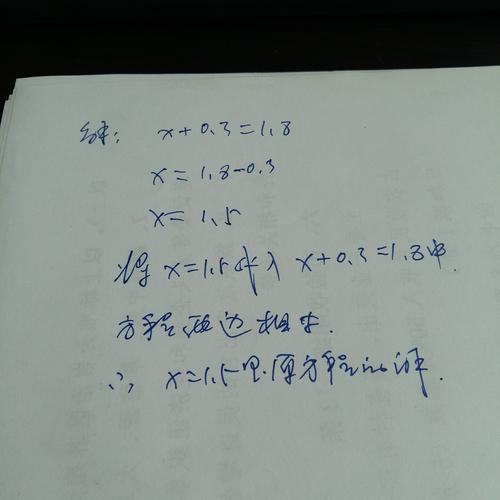 解: x+0.3=1.8
x=1.8-0.3
x=1.5
将 x=1.5代入 x+0.3=1.8中.
方程两边相等.
∴ x=1.5是原方程的解.